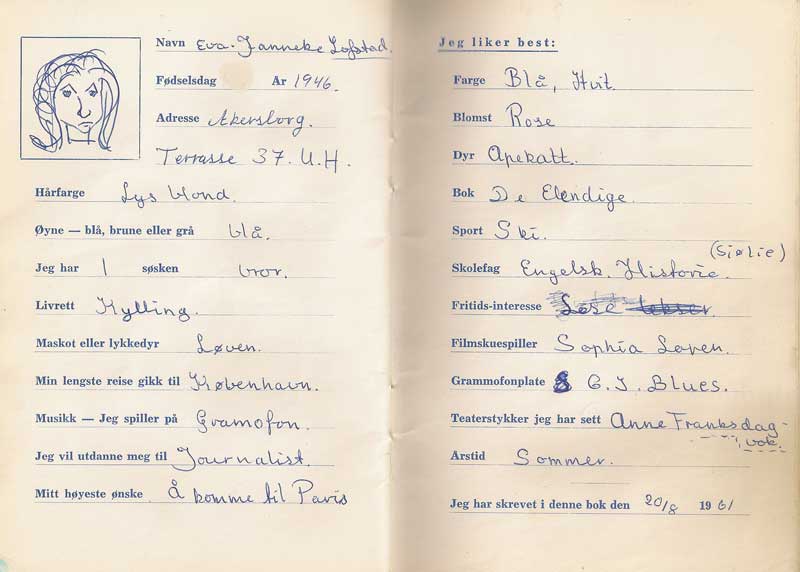 Navn Eva-Janneke Lofstad.
Fødselsdag År 1946.
Adresse Akersborg.
Terrasse 37. U.H.
Hårfarge Lys blond.
Øyne — blå, brune eller grå blå.
Jeg har 1 søsken bror.
Livrett Kylling.
Maskot eller lykkedyr Løven.
Min lengste reise gikk til København.
Musikk — Jeg spiller på Gramofon.
Jeg vil utdanne meg til Journalist.
Mitt høyeste ønske Å komme til Paris
Jeg liker best:
Farge Blå, Hvit.
Blomst Rose
Dyr Apekatt.
Bok De Elendige.
Sport Ski.
(Siølie)
Skolefag Engelsk. Historie.
Fritids-interesse Lese
Filmskuespiller Sophia Loren.
Grammofonplate G.I. Blues.
Teaterstykker jeg har sett Anne Franks dag-
bok.
Årstid Sommer.
Jeg har skrevet i denne bok den 20/8 1961